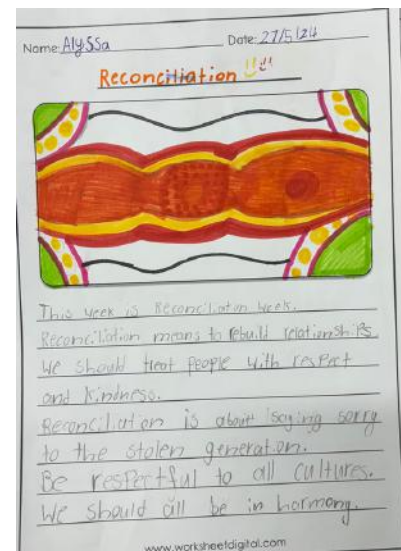 Name: Alyssa Date: 27/5/24
Reconciliation
This week is Reconciliation week.
Reconciliation means to rebuild relationships
We should treat people with respect
and kindness.
Reconciliation is about saying sorry
to the stolen generation.
Be respectful to all cultures.
We should all be in harmony.
www.worksheetdigital.com